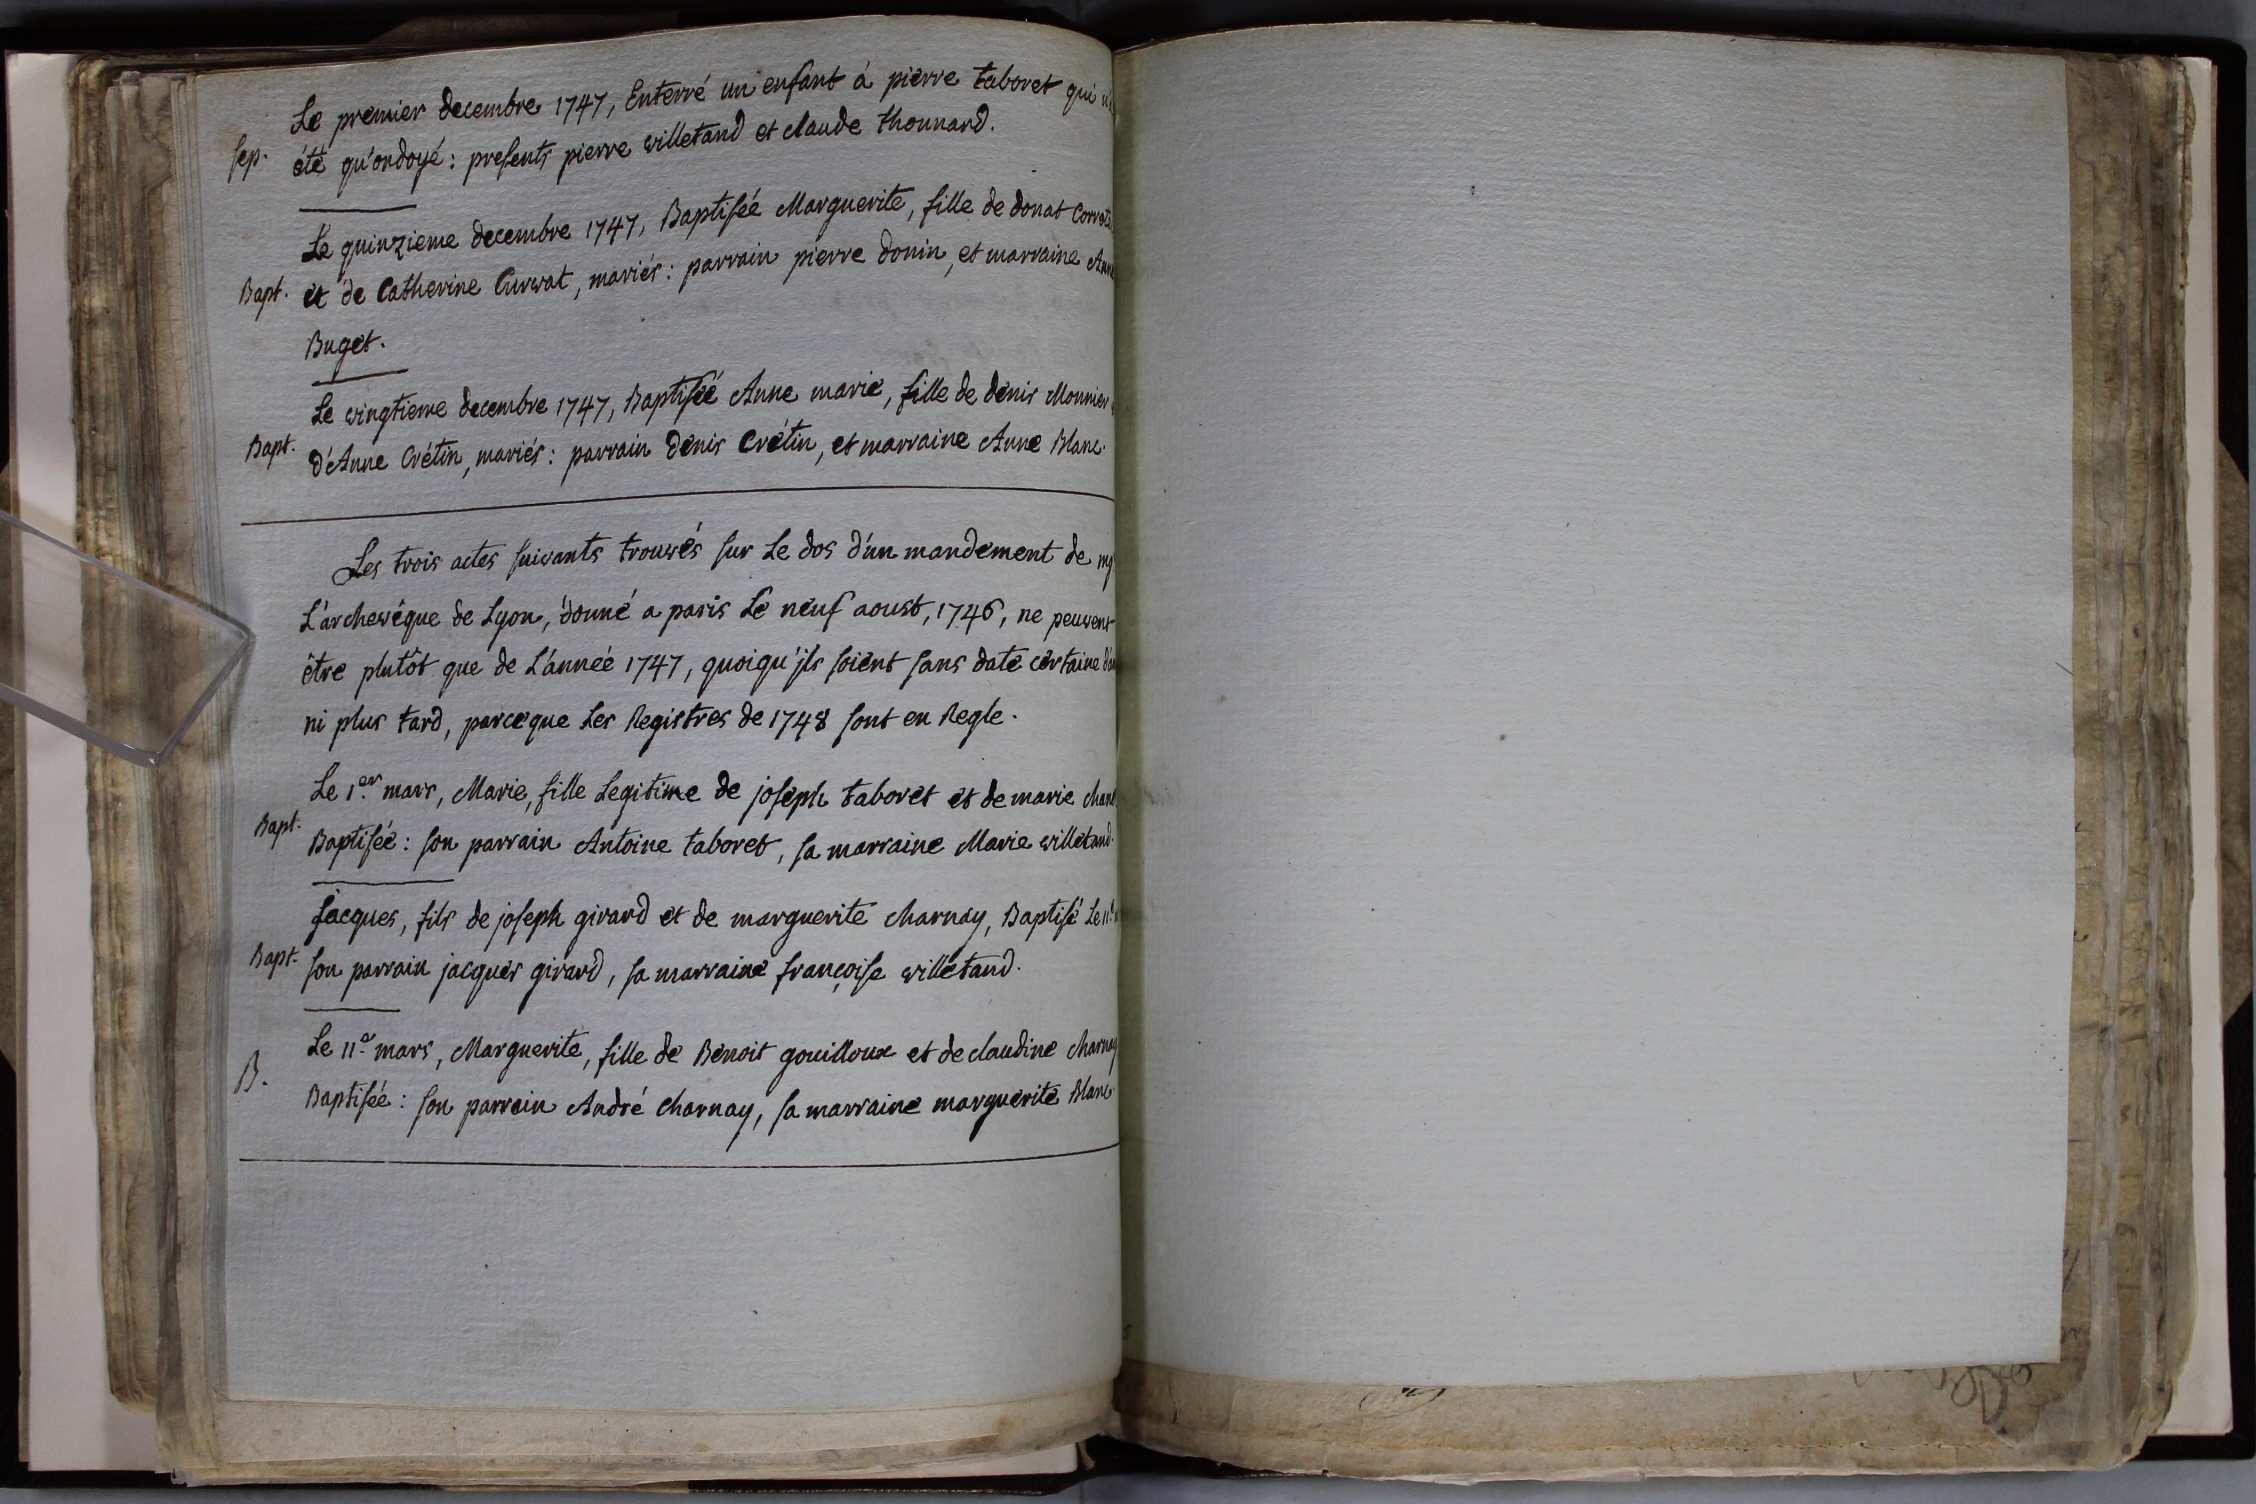 Le premier decembre 1747, Enterré un enfant à pierre taboret qui n'a
Sep. été qu'ondoyé : presents pierre villetand et claude thonnard.
Le quinzieme decembre 1747, Baptisée Marguerite, fille de donat
Bapt. et de Catherine Curvat, mariés : parrain pierre donin, et marraine Anne
Buget.
Le vingtieme decembre 1747, Baptisée Anne marie, fille de denis Monnier
Bapt. d'Anne Crétin, mariés : parrain denis Crétin, et marraine Anne Blanc.
Les trois actes suivants trouvés sur Le dos d'un mandement de mg
L'archevêque de Lyon, donné a paris Le neuf aoust, 1746, ne peuvent
être plutôt que de L'année 1747, quoiqu'ils soient sans date certaine
ni plus tard, parceque Les Registres de 1748 sont en Regle.
Le 1er mars, Marie, fille Legitime de joseph taboret et de marie
Bapt. Baptisée : son parrain Antoine taboret, sa marraine Marie villetand.
jacques, fils de joseph girard et de marguerite charnay, Baptisé Le 11e
Bapt. son parrain jacques girard, sa marraine françoise villetand.
Le 11e mars, Marguerite, fille de Benoit gouilloux et de claudine charnay
B. Baptisée : son parrain André charnay, sa marraine marguerite Blanc.